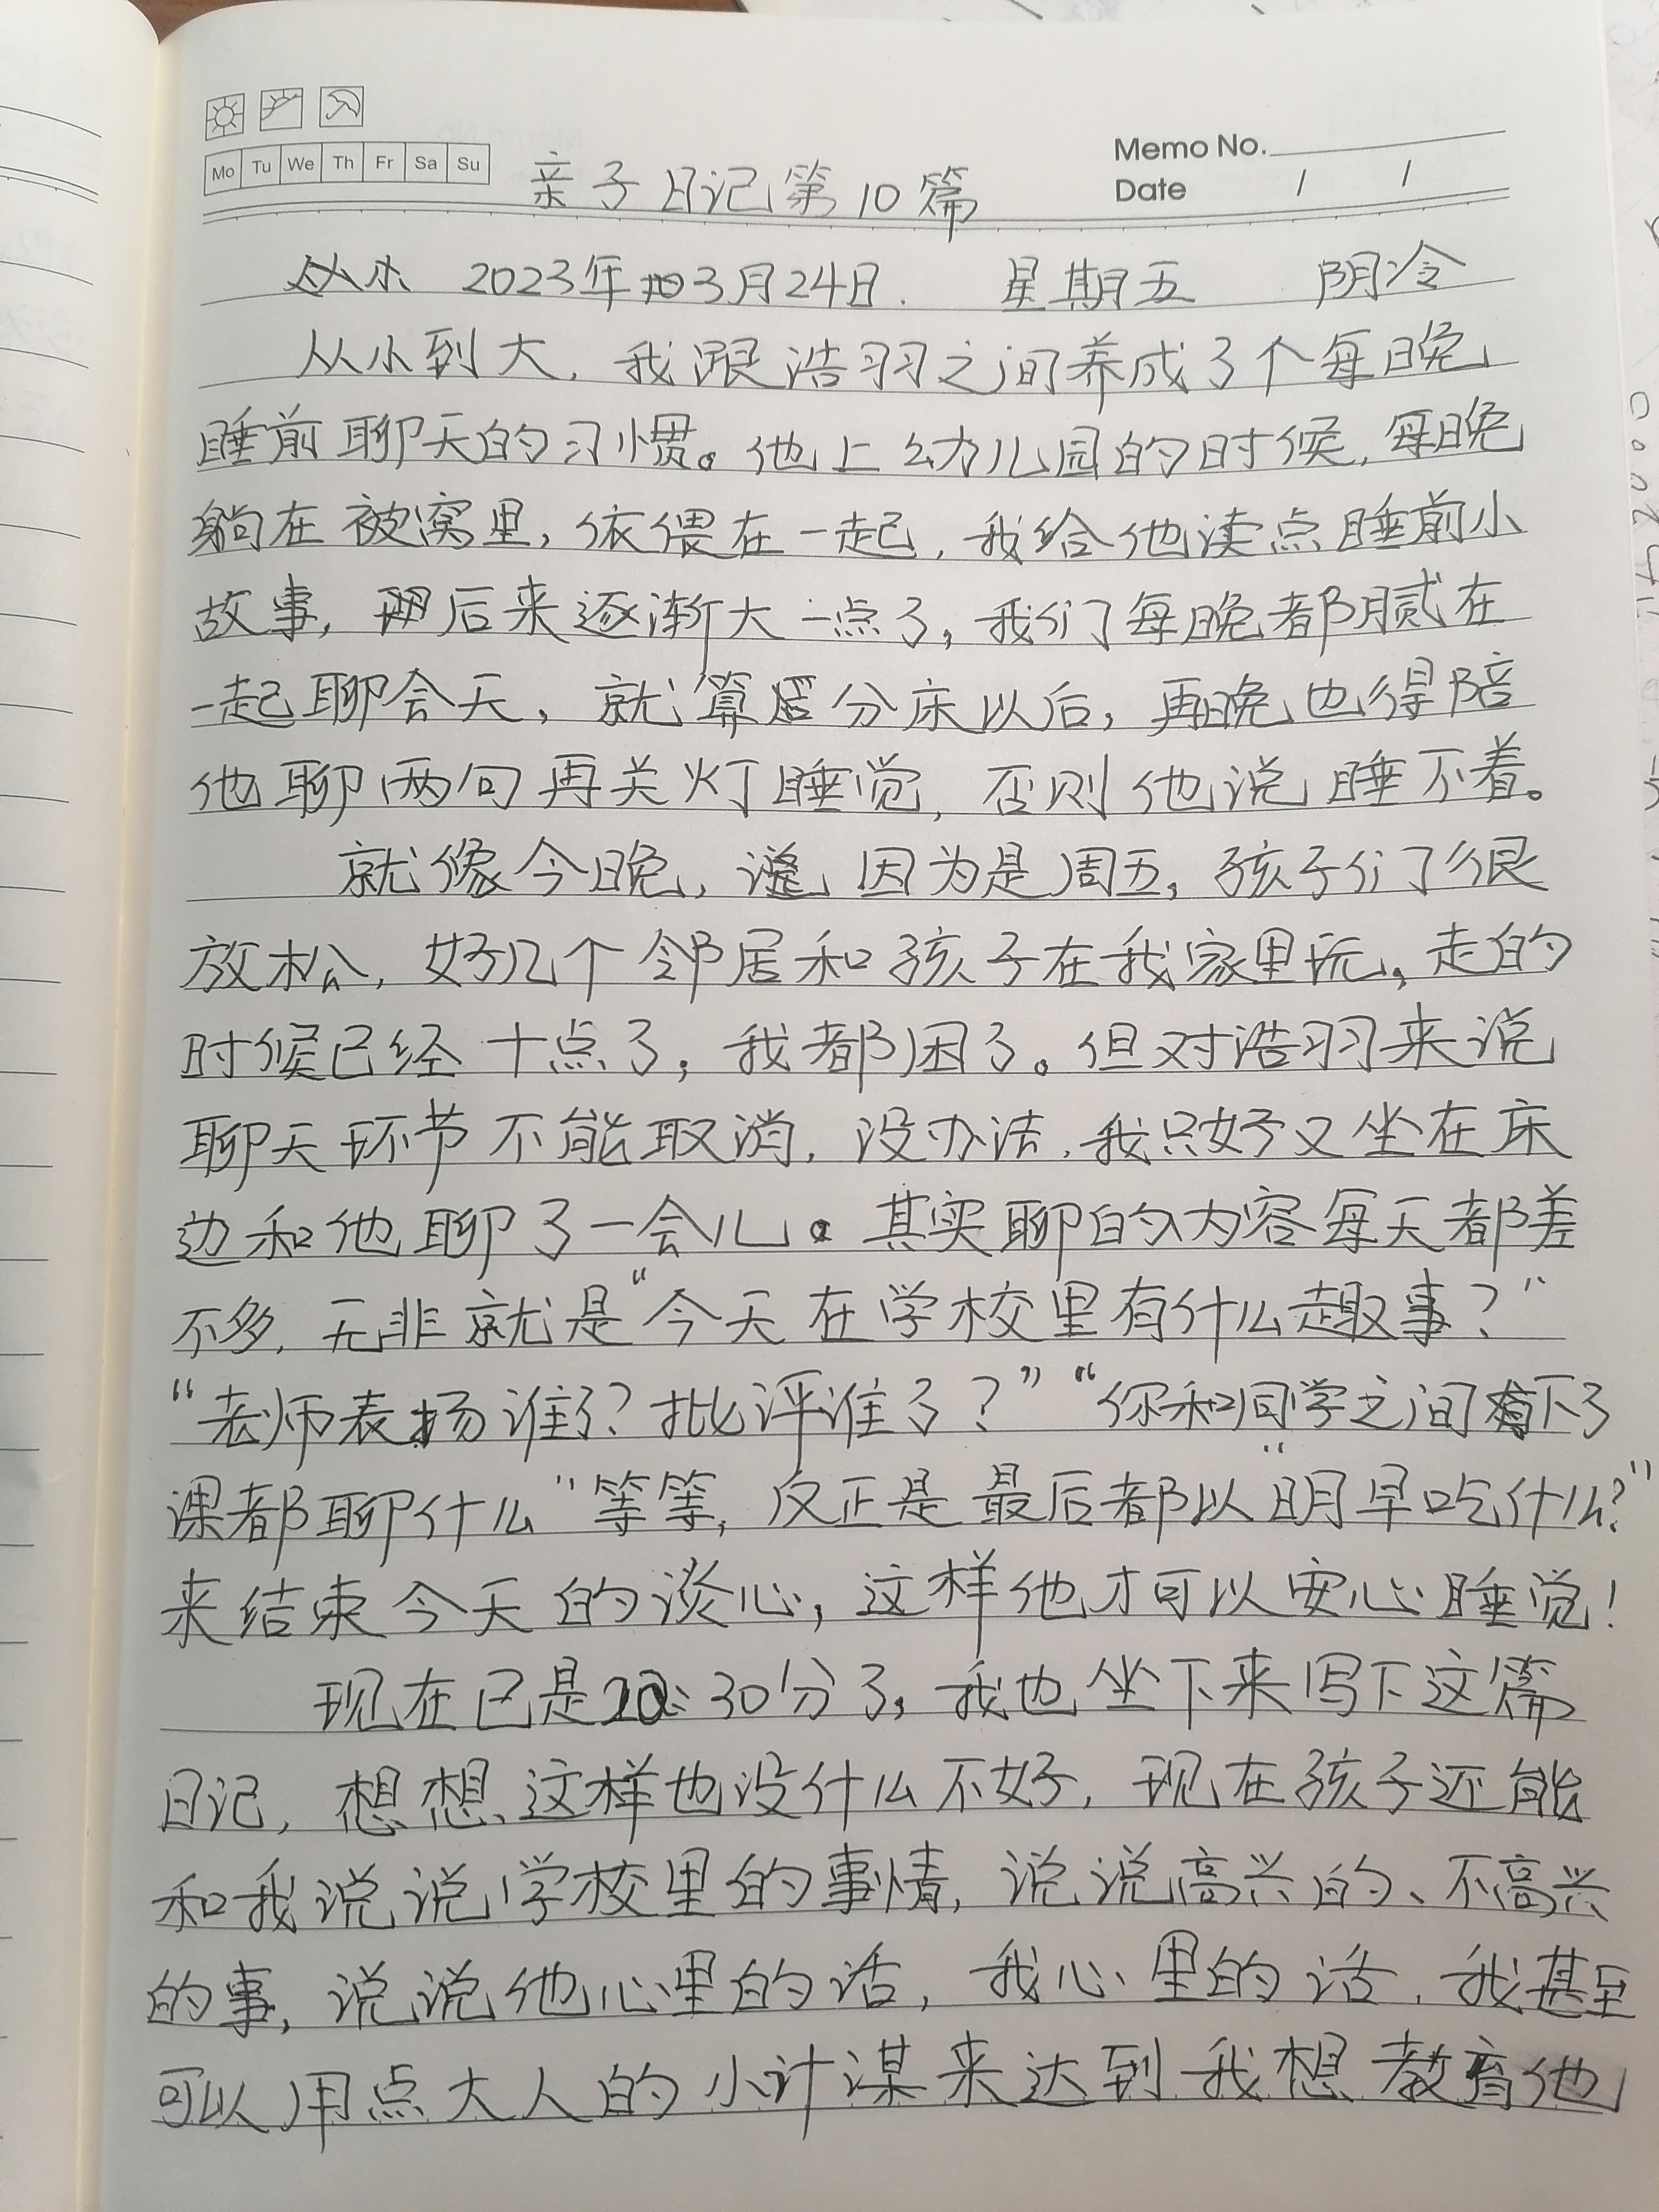 Memo No.
Mo Tu We Th Fr Sa Su
Date / /
亲子日记第10篇
2023年3月24日. 星期五 阴冷
从小到大,我跟浩羽之间养成了个每晚
睡前聊天的习惯。他上幼儿园的时候,每晚
躺在被窝里,依偎在一起,我给他读点睡前小
故事,后来逐渐大一点了,我们每晚都腻在
一起聊会天,就算分床以后,再晚也得陪
他聊两句再关灯睡觉,否则他说睡不着。
就像今晚,因为是周五,孩子们很
放松,好几个邻居和孩子在我家里玩,走的
时候已经十点了,我都困了。但对浩羽来说
聊天环节不能取消,没办法,我只好又坐在床
边和他聊了一会儿。其实聊的内容每天都差
不多,无非就是“今天在学校里有什么趣事?”
“老师表扬谁了?批评谁了?”“你和同学之间下了
课都聊什么”等等,反正是最后都以“明早吃什么?”
来结束今天的谈心,这样他才可以安心睡觉!
现在已是10:30分了,我也坐下来写下这篇
日记,想想,这样也没什么不好,现在孩子还能
和我说说学校里的事情,说说高兴的、不高兴
的事,说说他心里的话,我心里的话,我甚至
可以用点大人的小计谋来达到我想教育他